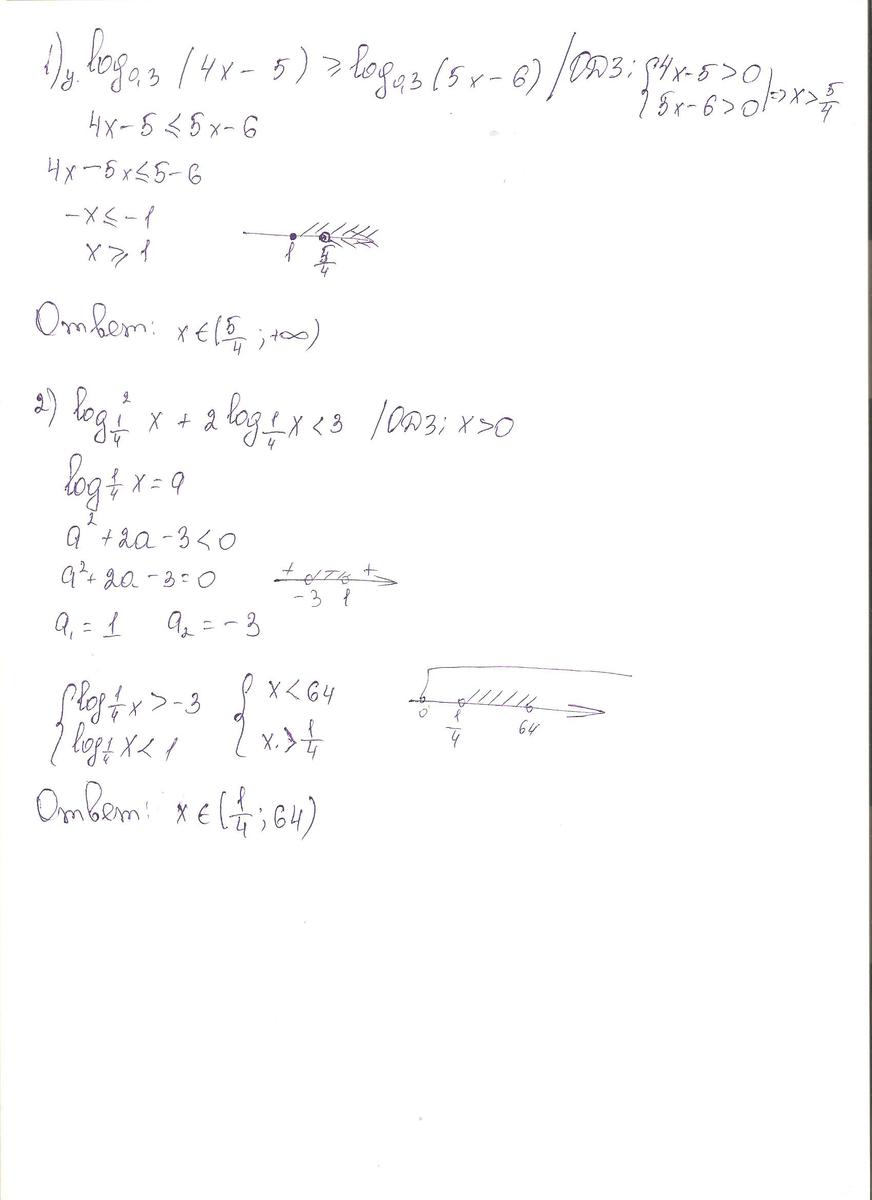 1) y. log₀,₃ (4x - 5) ≥ log₀,₃ (5x - 6) / ОДЗ: { 4x - 5 > 0
5x - 6 > 0 | => x > 5/4
4x - 5 ≤ 5x - 6
4x - 5x ≤ 5 - 6
-x ≤ -1
x ≥ 1
1 5/4
Ответ: x ∈ (5/4 ; +∞)
2) log²_1/4 x + 2 log_1/4 x < 3 / ОДЗ: x > 0
log_1/4 x = a
a² + 2a - 3 < 0
a² + 2a - 3 = 0
+ - +
-3 1
a₁ = 1 a₂ = -3
{ log_1/4 x > -3 { x < 64
log_1/4 x < 1 x > 1/4
0 1/4 64
Ответ: x ∈ (1/4 ; 64)